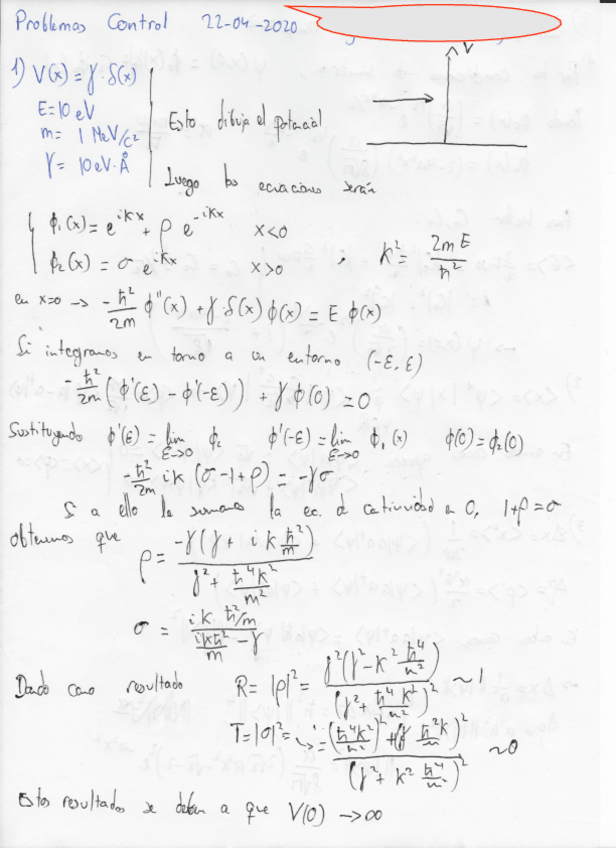 Problemas Control 22-04-2020
1) V(x) = γ·δ(x)
E = 10 eV
m = 1 MeV/c²
γ = 10 eV·Å
Esto dibuja el potencial
V
Luego las ecuaciones serán
ϕ₁(x) = e^{ikx} + ρ e^{-ikx} x<0
ϕ₂(x) = σ e^{ikx} x>0 , k² = 2mE/ħ²
en x=0 → -ħ²/2m ϕ''(x) + γ·δ(x) ϕ(x) = E ϕ(x)
Si integramos en torno a un entorno (-ε, ε)
-ħ²/2m (ϕ'(ε) - ϕ'(-ε)) + γ ϕ(0) = 0
Sustituyendo ϕ'(ε) = lim_{ε→0} ϕ₂ ϕ'(-ε) = lim_{ε→0} ϕ₁(x) ϕ(0) = ϕ₂(0)
-ħ²/2m ik (σ-1+ρ) = -γσ
Si a ello le sumamos la ec. d catinuidad en 0, 1+ρ=σ
obtenemos que ρ = -γ(γ + ik ħ²/m) / (γ² + ħ⁴k²/m²)
σ = (ik ħ²/m) / (ikħ²/m - γ)
Dando como resultado R = |ρ|² = γ²(γ² - k² ħ⁴/m²) / (γ² + ħ⁴k²/m²)² ~1
T = |σ|² = ((ħ⁴k²/m²)² + (γ ħ²k/m)²) / (γ² + k² ħ⁴/m²)² ~0
Estos resultados se deben a que V(0) → ∞